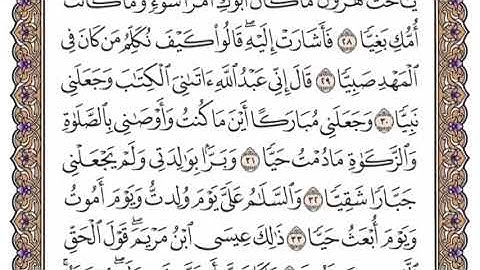 يَٰأُخْتَ هَٰرُونَ مَا كَانَ أَبُوكِ ٱمْرَأَ سَوْءٍ وَمَا كَانَتْ
أُمُّكِ بَغِيًّا ٢٨ فَأَشَارَتْ إِلَيْهِ ۖ قَالُوا۟ كَيْفَ نُكَلِّمُ مَن كَانَ فِى
ٱلْمَهْدِ صَبِيًّا ٢٩ قَالَ إِنِّى عَبْدُ ٱللَّهِ ءَاتَىٰنِىَ ٱلْكِتَٰبَ وَجَعَلَنِى
نَبِيًّا ٣٠ وَجَعَلَنِى مُبَارَكًا أَيْنَ مَا كُنتُ وَأَوْصَٰنِى بِٱلصَّلَوٰةِ
وَٱلزَّكَوٰةِ مَا دُمْتُ حَيًّا ٣١ وَبَرًّۢا بِوَٰلِدَتِى وَلَمْ يَجْعَلْنِى
جَبَّارًا شَقِيًّا ٣٢ وَٱلسَّلَٰمُ عَلَىَّ يَوْمَ وُلِدتُّ وَيَوْمَ أَمُوتُ
وَيَوْمَ أُبْعَثُ حَيًّا ٣٣ ذَٰلِكَ عِيسَى ٱبْنُ مَرْيَمَ ۚ قَوْلَ ٱلْحَقِّ